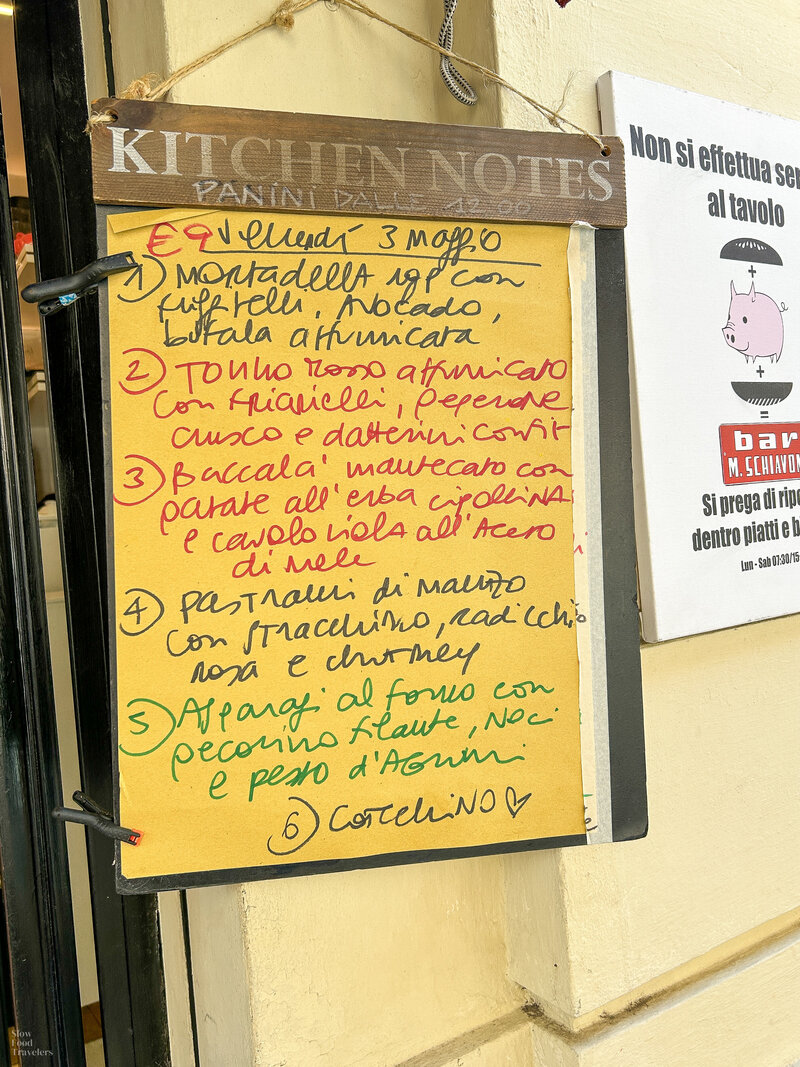 KITCHEN NOTES
PANINI DALLE 12.00
€9 Venerdì 3 Maggio
1) MORTADELLA IGP con
friggitelli, Avocado,
bufala affumicata
2) Tonno rosso affumicato
con friarielli, peperone
crusco e datterini confit
3) Baccalà mantecato con
patate all'erba cipollina
e cavolo viola all'Aceto
di mele
4) Pastrami di manzo
con stracchino, radicchio
rosa e chutney
5) Asparagi al forno con
pecorino filante, Noci
e pesto d'Agrumi
6) COTECHINO ♡
Non si effettua ser
al tavolo
+
+
=
bar
M. SCHIAVON
Si prega di ripo
dentro piatti e b
Lun - Sab 07:30/15
Slow
Food
Travelers